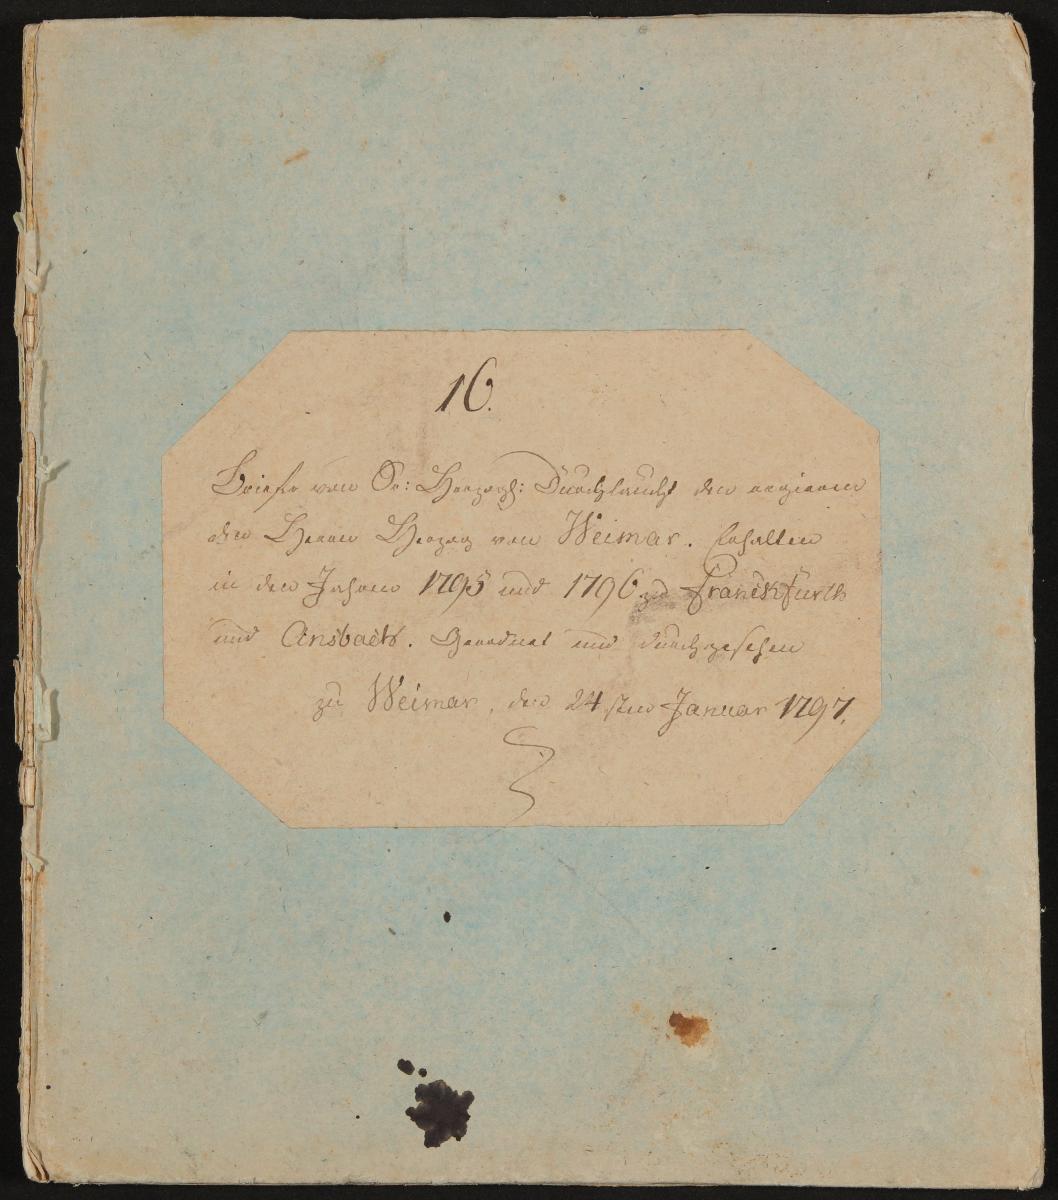 16.
Briefe von Sr: Herzogl: Durchlaucht den regieren
den Herrn Herzog von Weimar. Erhalten
in den Jahren 1795 und 1796 zu Franckfurth
und Ansbach. Geordnet und durchgesehen
zu Weimar, den 24sten Januar 1797.